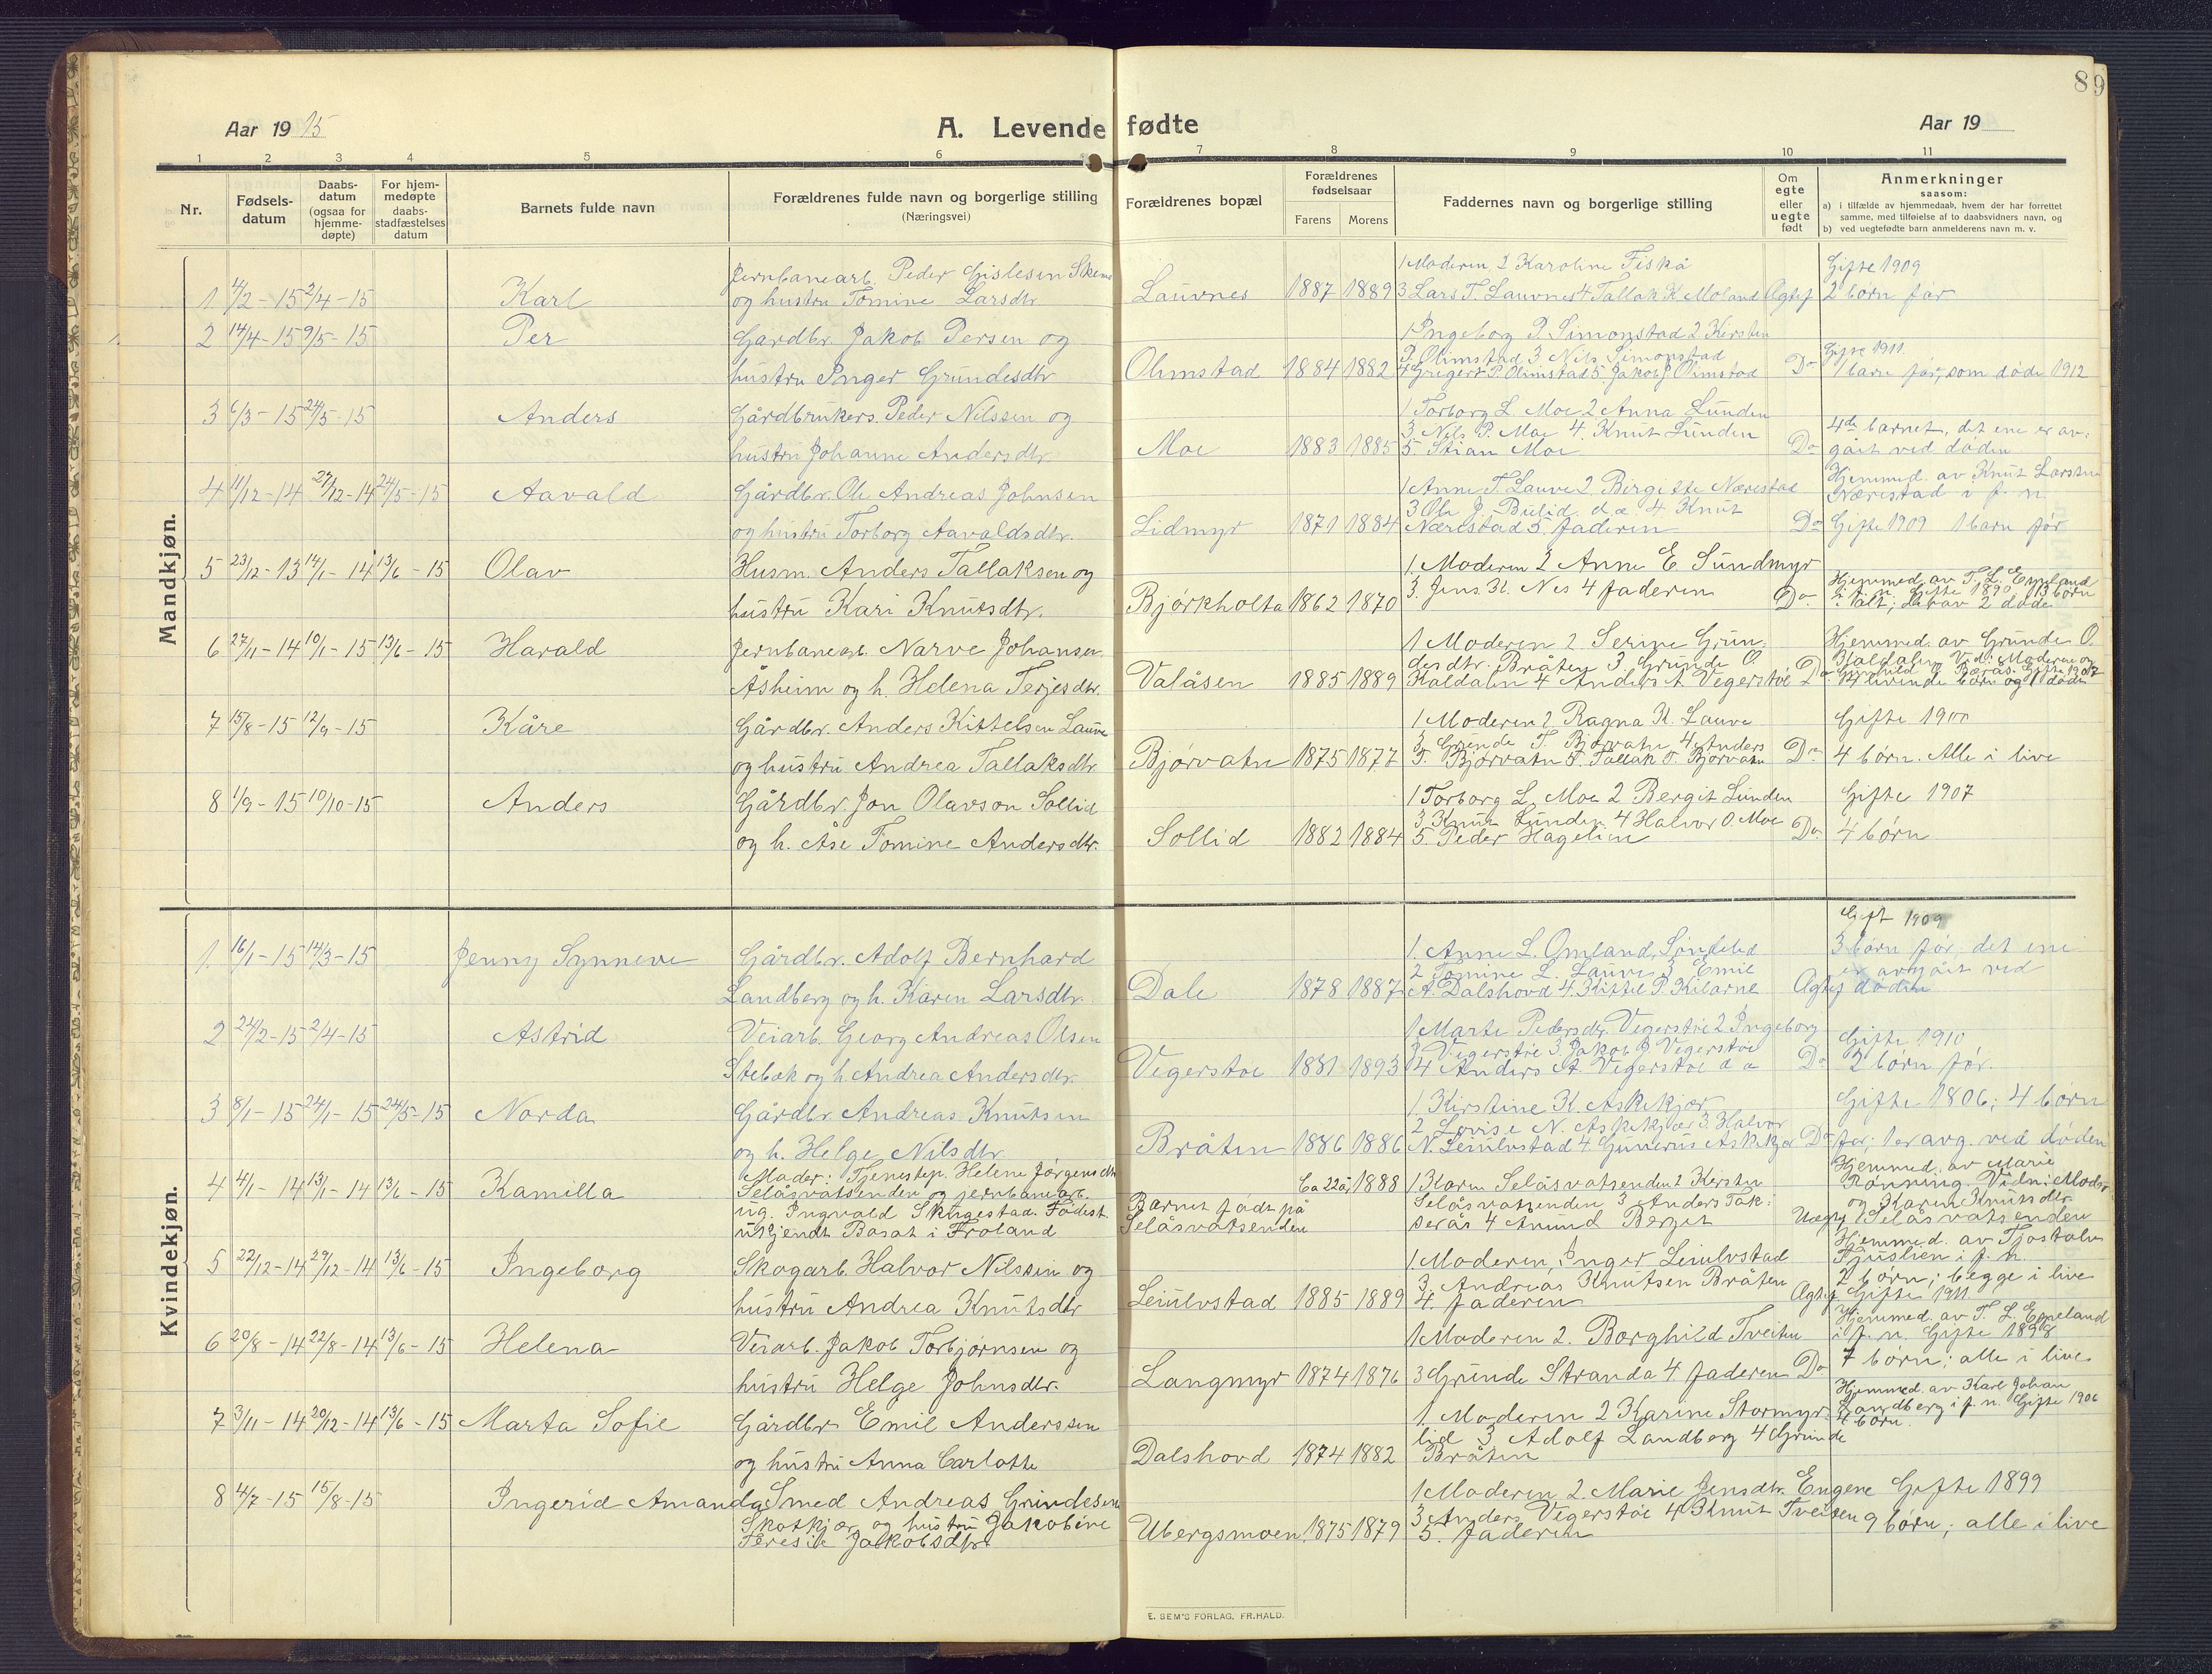 89
Aar 1915
A. Levende fødte
Aar 19
1 2 3 4 5 6 7 8 9 10 11
Nr.
Fødsels-
datum
Daabs-
datum
(ogsaa for
hjemme-
døpte)
For hjem-
medøpte
daabs-
stadfæstelses
datum
Barnets fulde navn
Forældrenes fulde navn og borgerlige stilling
(Næringsvei)
Forældrenes bopæl
Forældrenes
fødselsaar
Farens Morens
Faddernes navn og borgerlige stilling
Om
egte
eller
uegte
født
Anmerkninger
saasom:
a) i tilfælde av hjemmedaab, hvem der har forrettet
samme, med tilføielse af to daabsvidners navn, og
b) ved uegtefødte barn anmelderens navn m. v.
Mandkjøn.
1 4/2-15 2/4-15 Karl
Jernbanearb. Peder Gislesen
og hustru Tomine Larsdtr.
Lauvnes 1887 1889
1 Moderen 2 Karoline Fiskå
3 Lars T. Lauvnes 4 Tallak K Moland
Ægtef
Gifte 1909
2 børn før
2 14/4-15 9/5-15 Per
Gårdbr. Jakob Persen og
hustru Inger Grundesdtr
Olimstad 1884 1882
1 Ingeborg P. Simonstad 2 Kirsten
P. Olimstad 3 Nils Simonstad
4 Grigert P. Olimstad 5 Jakob J Olimstad
Do
Gifte 1911.
1 barn før, som døde 1912
3 6/3-15 24/5-15 Anders
Gårdbrukers. Peder Nilssen og
hustru Johanne Andersdtr.
Moe 1883 1885
1 Torborg L. Moe 2 Anna Lunden
3 Nils P. Moe 4. Knut Lunden
5. Stian Moe
Do
4de barnet, det ene er av-
gåit ved døden
4 11/12-14 27/12-14 24/5-15 Aavald
Gårdbr. Ole Andreas Johnsen
og hustru Torborg Aavaldsdtr.
Lidmyr 1871 1884
1 Anne T. Lauve 2. Birgitte Nærestad
3 Ole J. Bulid d.æ. 4 Knut
Nærestad 5. faderen
Do
Hjemmed. av Knut Larsen
Nærestad i f. n.
Gifte 1909 1 barn før
5 23/12-13 14/1-14 13/6-15 Olav
Husm. Anders Tallaksen og
hustru Kari Knutsdtr.
Bjørkholta 1862 1870
1. Moderen 2 Anne E. Sundmyr
3. Jens K. Nes 4 faderen
Do
Hjemmed. av T. L. Eppeland
i f. n. Gifte 1890, 13 børn
i alt; derav 2 døde
6 27/11-14 10/1-15 13/6-15 Harald
Jernbanearb. Narve Johansen
Åsheim og h. Helena Terjesdtr.
Valåsen 1885 1889
1 Moderen 2 Serine Grun-
desdtr. Bråten 3 Grunde O.
Haldalen 4 Anders A Vegerstøl
Do
Hjemmed. av Grunde O.
Haldalen Vid.: Moderen og
Gunhild Berås. Gifte 1907
4 levende børn og 1 død
7 15/8-15 12/9-15 Kåre
Gårdbr. Anders Kittelsen Lauve
og hustru Andrea Tallaksdtr.
Bjørvatn 1875 1877
1 Moderen 2 Ragna K. Lauve
3 Grunde T. Bjørvatn 4 Anders
T. Bjørvatn 5. Tallak T. Bjørvatn
Do
Gifte 1900
4 børn. Alle i live
8 1/9-15 10/10-15 Anders
Gårdbr. Jon Olavson Sollid
og h. Åse Tomine Andersdtr.
Sollid 1882 1884
1 Torborg L. Moe 2 Bergit Lunden
3 Knut Lunden 4 Halvor O. Moe
5. Peder Hagelien
Do
Gifte 1907
4 børn
Kvindekjøn.
1. 16/1-15 14/3-15 Jenny Synneve
Gårdbr. Adolf Bernhard
Landberg og h. Karen Larsdtr.
Dale 1878 1887
1. Anne L. Omland, Søndeled
2 Tomine L. Lauve 3 Emil
A. Dalshovd 4. Kittil P. Kilarne
Ægtef
Gift 1909
3 børn før det ene
er avgåit ved
døden
2 24/2-15 2/4-15 Astrid
Veiarb. Georg Andreas Olsen
Stebæk og h Andrea Andersdtr.
Vegerstøl 1881 1893
1 Marte Pedersdtr. Vegerstøl 2 Ingeborg
Vegerstøl 3. Jakob J. Vegerstøl
4 Anders A. Vegerstøl d æ
Do
Gifte 1910
2 børn før.
3 8/1-15 24/1-15 24/5-15 Norda
Gårdbr. Andreas Knutsen
og h. Helge Nilsdtr.
Bråten 1886 1886
1 Kirstine K. Askekjær
2 Lovise N. Askekjær 3. Halvor
N. Leiulvstad 4 Gunerius Askekjær
Do
Gifte 1806; 4 børn
før; 1 er avg. ved døden
4 4/1-14 13/1-14 13/6-15 Kamilla
Moder: Tjenestep. Helene Jørgensdtr
Selåsvatsenden og jernbanearb.
ug. Ingvald Skugestad. Fødest.
ukjendt Bosat i Froland
Barnet født på
Selåsvatsenden
Ca 22 år 1888
1 Karen Selåsvatsenden 2 Kirsten
Selåsvatsenden 3 Anders Tak-
serås 4 Anund Berget
Uægte
Hjemmed. av Marie
Rønning. Vidn: Moder
og Karen Knutsdtr
Selåsvatsenden
5 22/12-14 29/12-14 13/6-15 Ingeborg
Skogarb. Halvor Nilssen og
hustru Andrea Knutsdtr
Leiulvstad 1885 1889
1 Moderen, Inger Leiulvstad
3. Andreas Knutsen Bråten
4. faderen
Ægtef.
Hjemmed. av Tjostolv
Fjuslien i f. n.
2 børn; begge i live
Gifte 1911
6 20/8-14 22/8-14 13/6-15 Helena
Veiarb. Jakob Torbjørnsen og
hustru Helge Johnsdtr.
Langmyr 1874 1876
1 Moderen 2. Borghild Tveiten
3 Grunde Stranda 4 faderen
Do
Hjemmed. av T. L. Eppeland
i f. n. Gifte 1898
7 børn; alle i live
7 3/11-14 20/12-14 13/6-15 Marta Sofie
Gårdbr. Emil Anderssen
og hustru Anna Carlotte
Dalshovd 1874 1882
1. Moderen 2 Karine Stormyr-
lid 3 Adolf Landberg 4 Grunde
Bråten
Hjemmed. av Karl Johan
Landberg i f. n. Gifte 1906
4 børn.
8 4/7-15 15/8-15 Ingerid Amanda
Smed Andreas Grundesen
Skotkjær og hustru Jakobine
Teresie Jakobsdtr.
Ubergsmoen 1875 1879
1 Moderen 2 Marie Jensdtr. Engene
3 Anders Vegerstøl 4 Knut Tveiten
5. faderen
Gifte 1899
9 børn; alle i live
E. SEM'S FORLAG, FR.HALD.